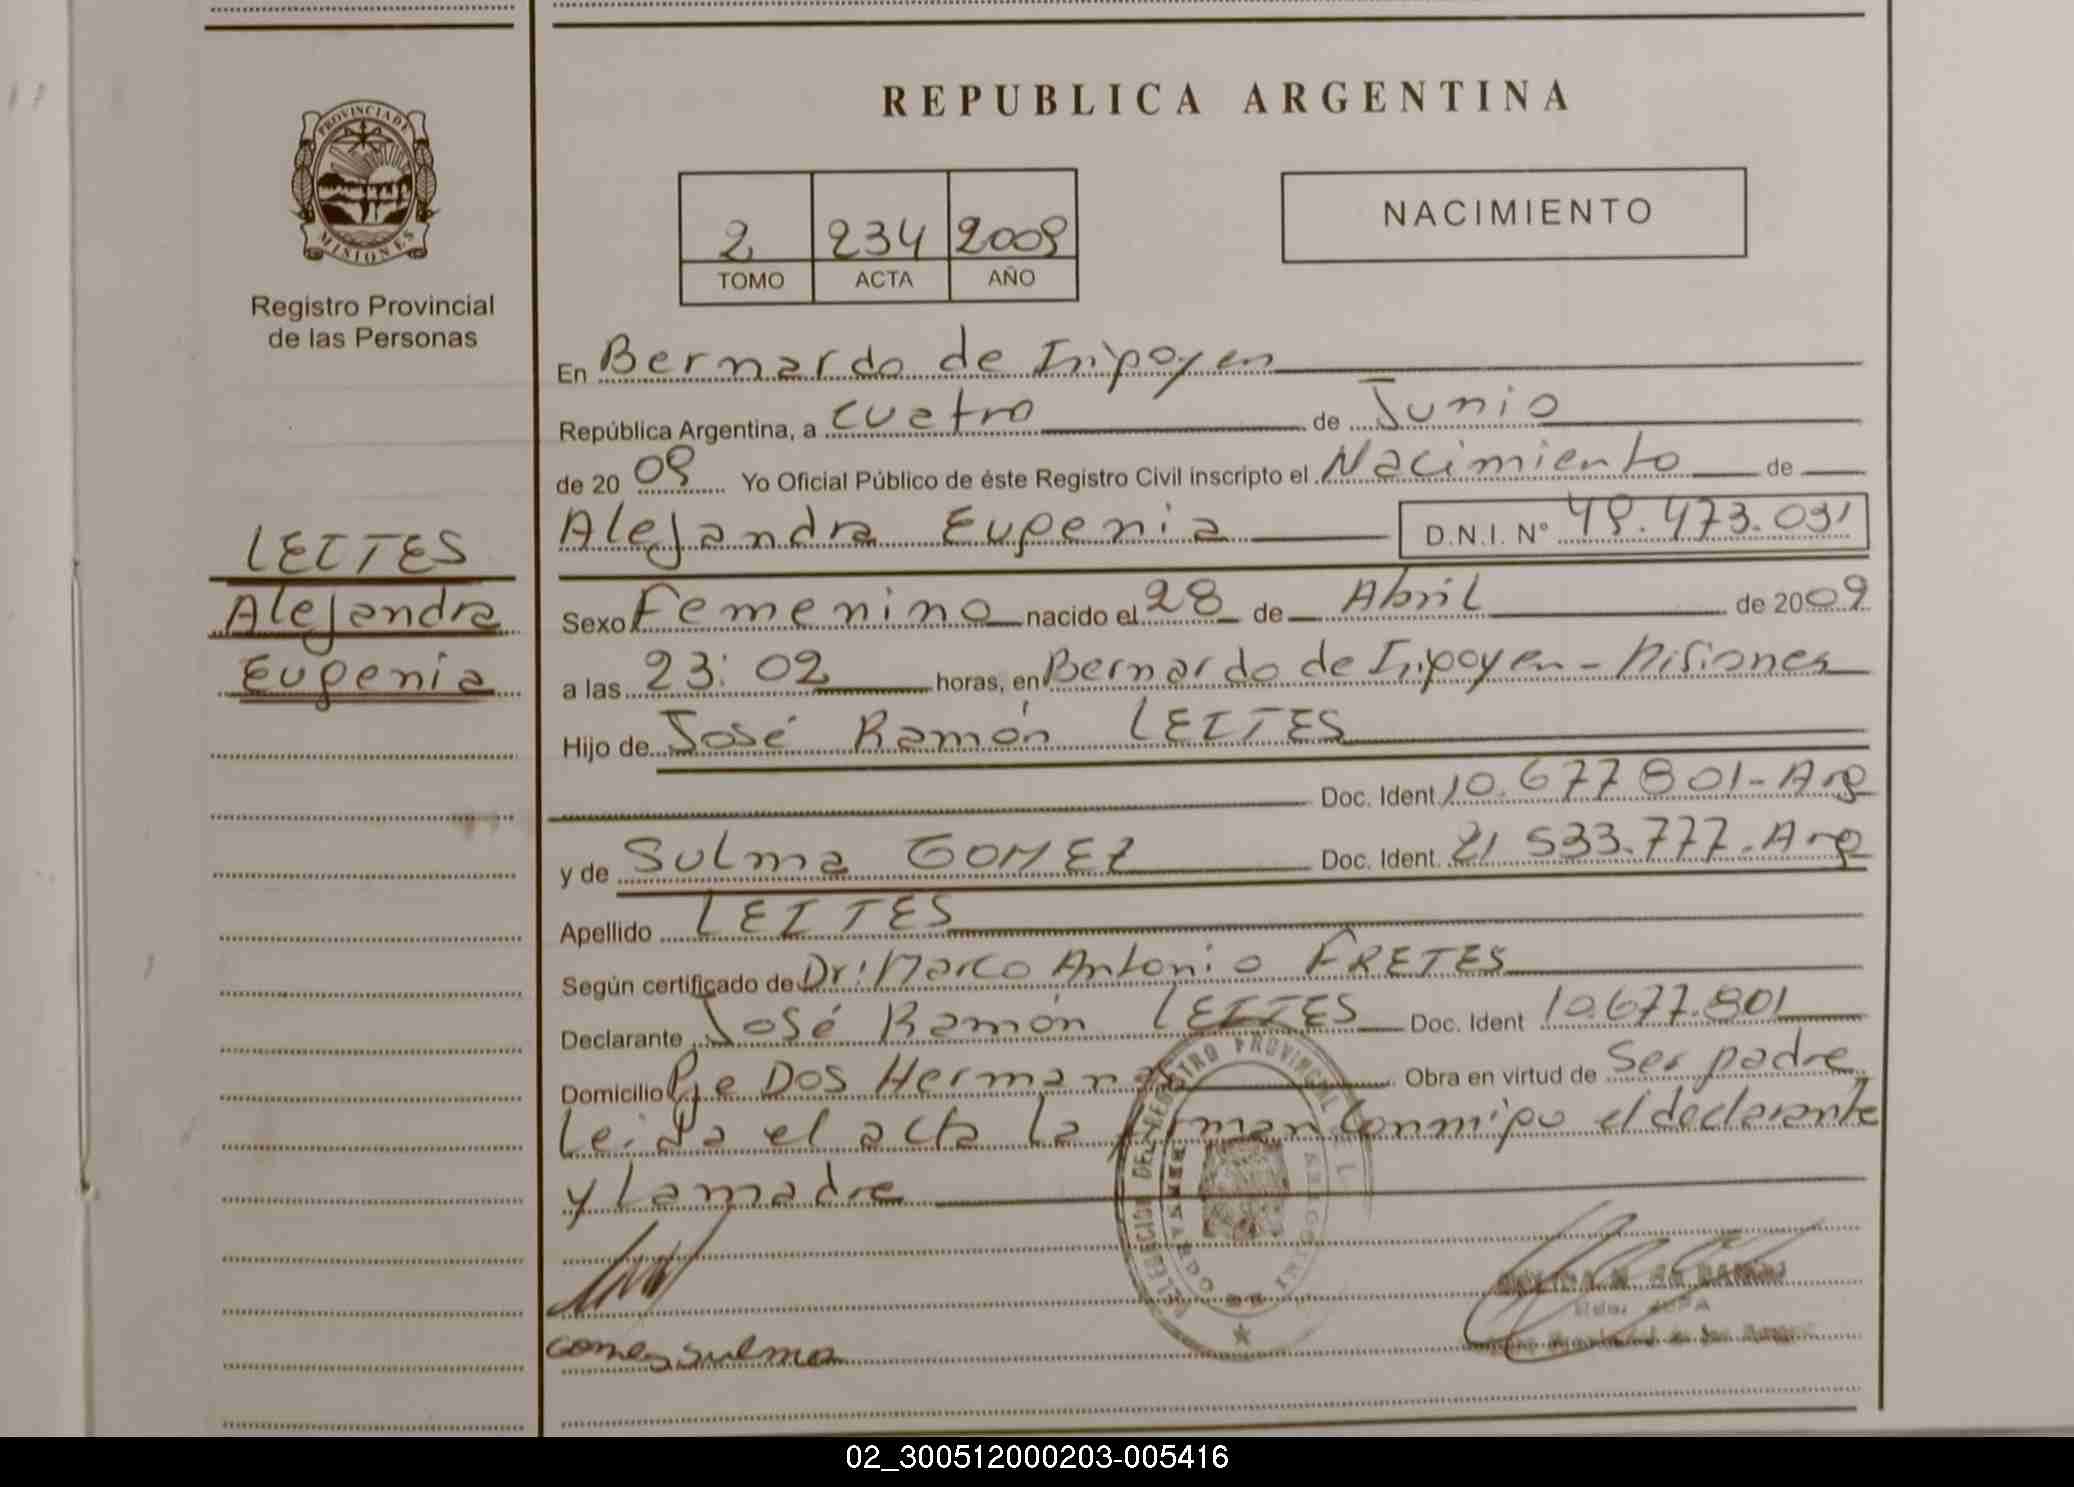 PROVINCIA DE
MISIONES
Registro Provincial
de las Personas
LEITES
Alejandra
Eugenia
REPUBLICA ARGENTINA
2 234 2009
TOMO ACTA AÑO
NACIMIENTO
En Bernardo de Irigoyen
República Argentina, a cuatro de Junio
de 20 09 Yo Oficial Público de éste Registro Civil inscripto el Nacimiento de
Alejandra Eugenia D.N.I. Nº 49.473.031
Sexo Femenino nacido el 28 de Abril de 2009
a las 23:02 horas, en Bernardo de Irigoyen - Misiones
Hijo de José Ramón LEITES
Doc. Ident. 10.677801-Arg
y de Sulma GOMEZ Doc. Ident. 21 533.777.Arg
Apellido LEITES
Según certificado de Dr: Marco Antonio FRETES
Declarante José Ramón LEITES Doc. Ident 10.677.801
Domicilio Pje Dos Hermanas Obra en virtud de Ser padre
Leida el acta la firman conmigo el declarante
y la madre
REGISTRO PROVINCIAL DE L
gomez sulma
02_300512000203-005416